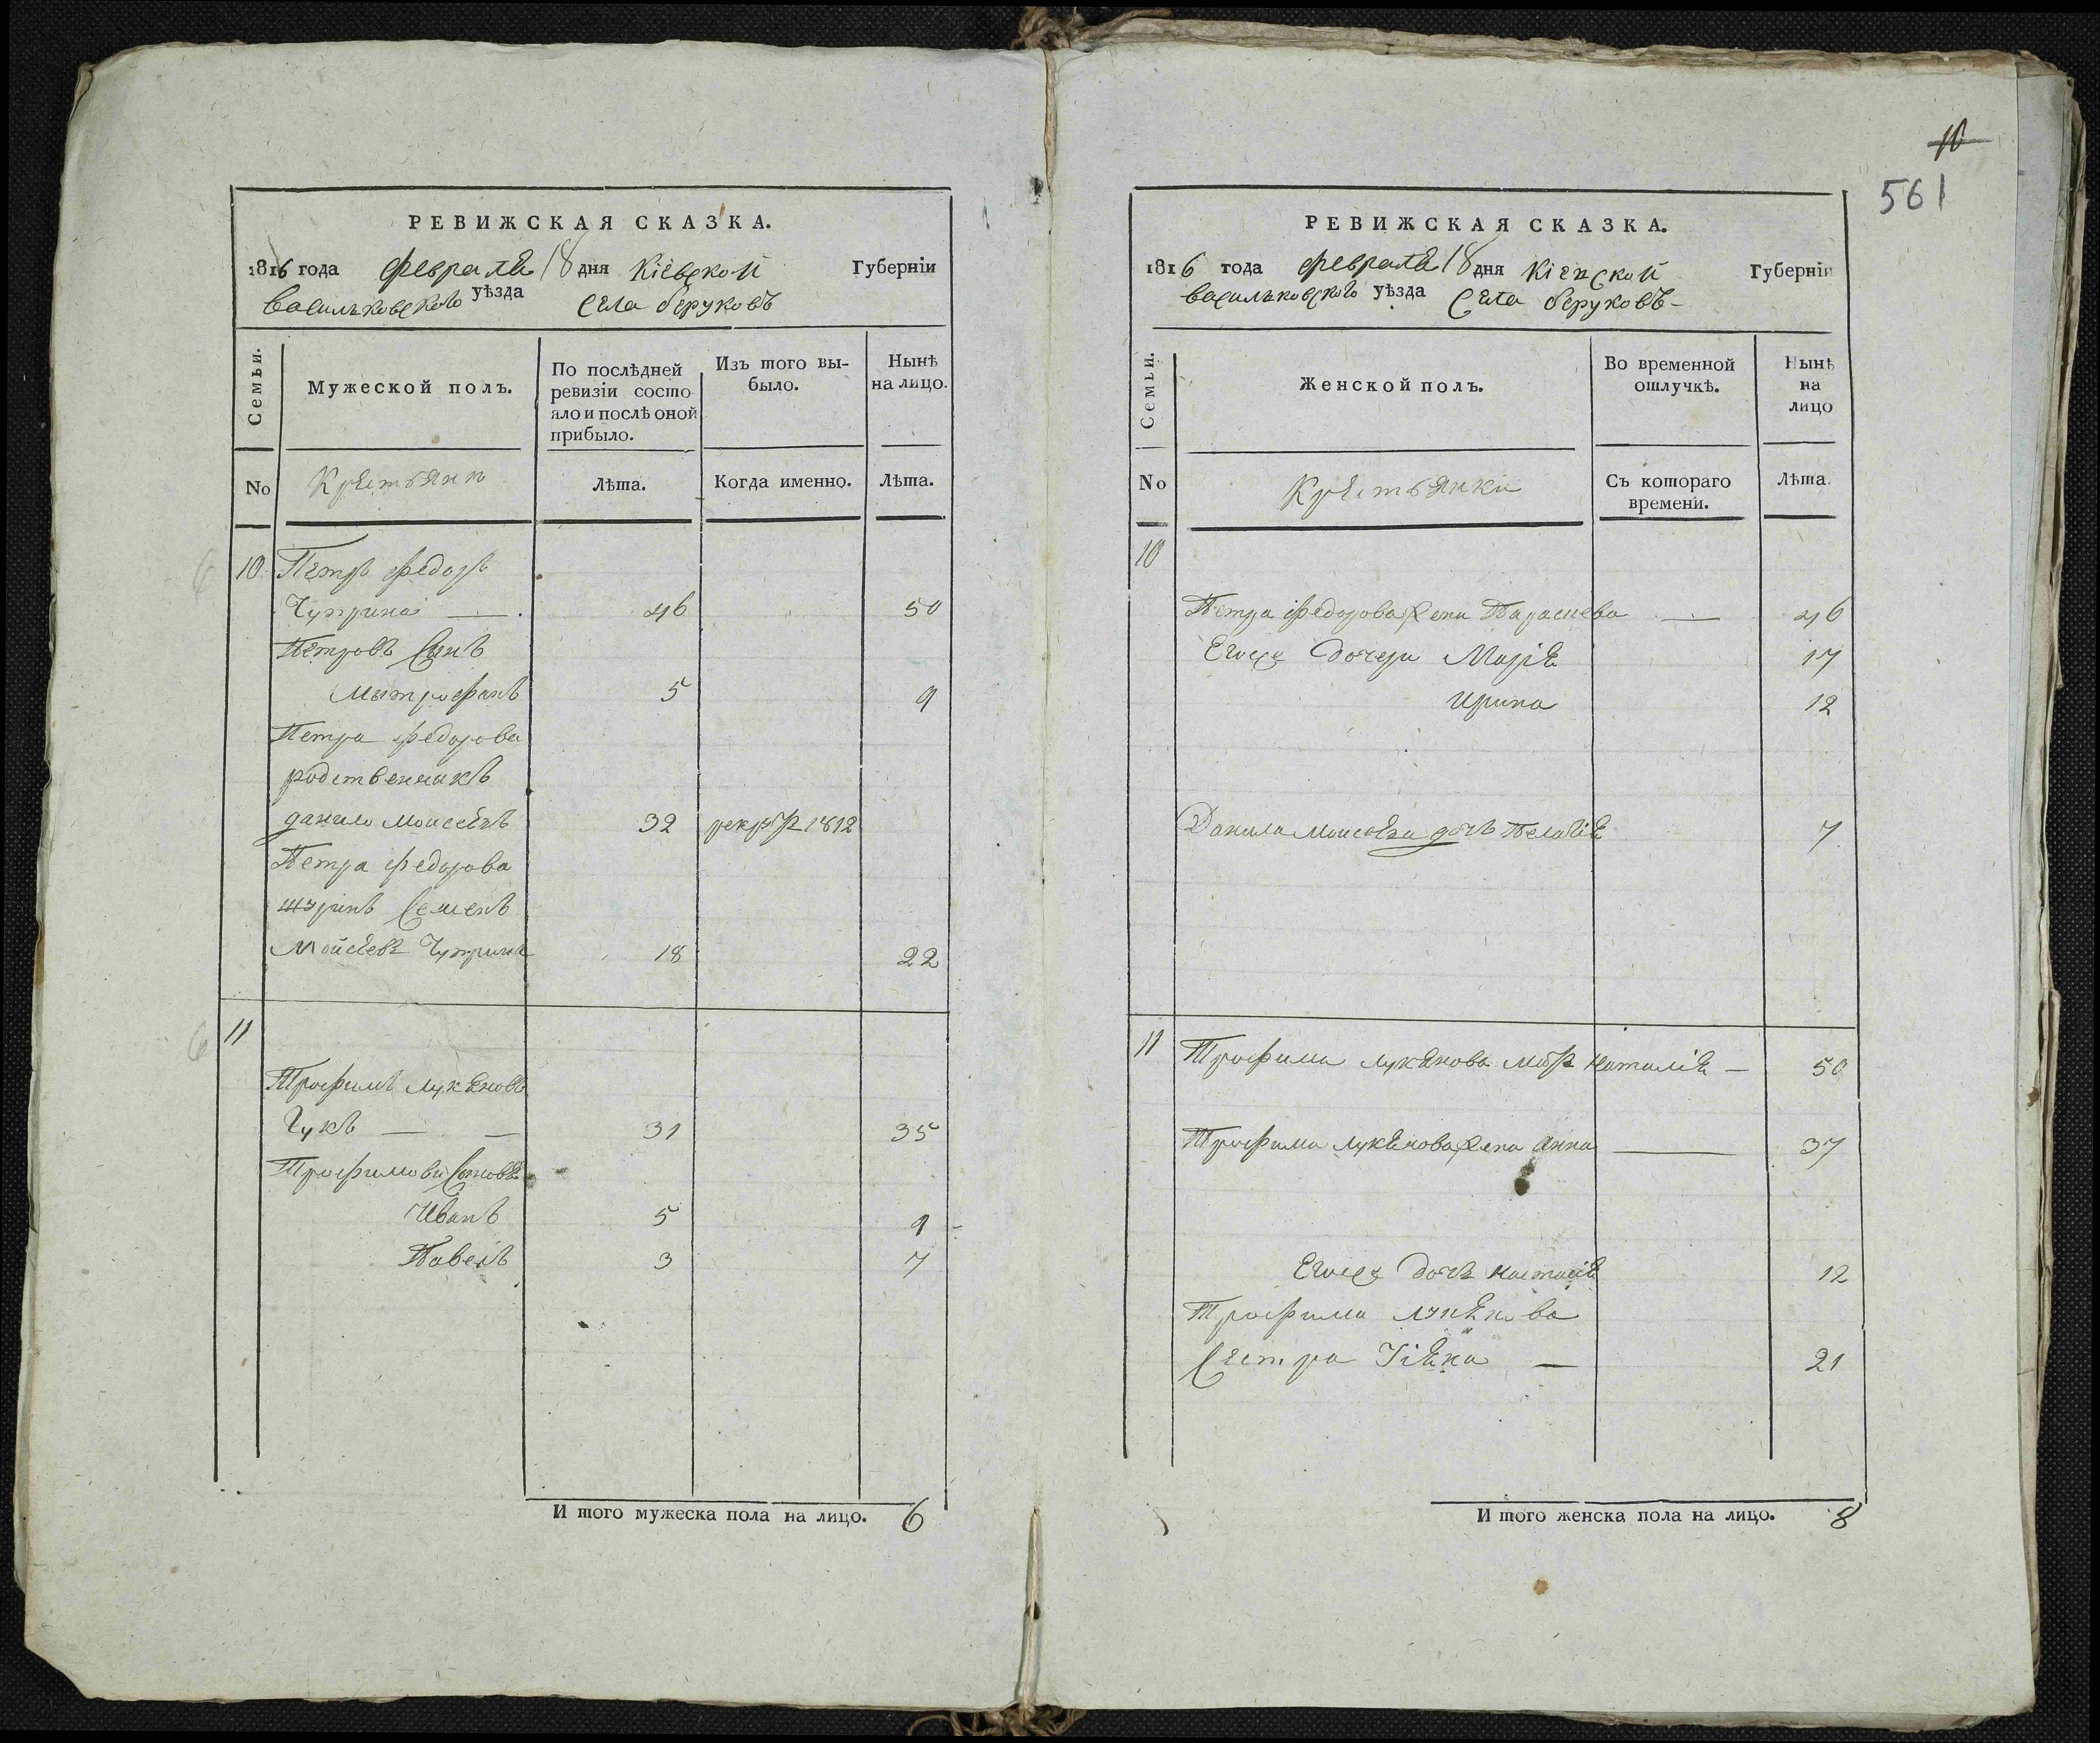 РЕВИЖСКАЯ СКАЗКА.
1816 года февраля 18 дня Кіевской Губерніи
васильковского уѣзда Села беруковъ
Семьи.
Мужеской полъ.
По послѣдней ревизіи состояло и послѣ оной прибыло.
Изъ того выбыло.
Нынѣ на лицо.
No
Крестьянъ
Лѣта.
Когда именно.
Лѣта.
10 Петръ федоръ
Чуприна — 46 50
Петровъ Сынъ
Мытрофанъ 5 9
Петра федорова
родственникъ
данило Моисеевъ 32 рекр 1812
Петра федорова
шуринъ Семенъ
Мойсеевъ Чуприна 18 22
11
Трофимъ лукяновъ
Чукъ — — 31 35
Трофимови Сыновя
Иванъ 5 9
Павелъ 3 7
И того мужеска пола на лицо. 6
10
561
РЕВИЖСКАЯ СКАЗКА.
1816 года февраля 18 дня Кіевской Губерніи
васильковского уѣзда Села беруковъ -
Семьи.
Женской полъ.
Во временной отлучкѣ.
Нынѣ на лицо
No
Крестьянки
Съ котораго времени.
Лѣта.
10
Петра федорова жена Параскева — 46
Егоже дочери Марія 17
Ирина 12
Данила Моисеева дочь Пелагія 7
11 Трофима лукянова мать наталія — 50
Трофима лукянова жена анна — 37
Егоже дочь настасія 12
Трофима лукянова
Сестра — 21
И того женска пола на лицо. 8